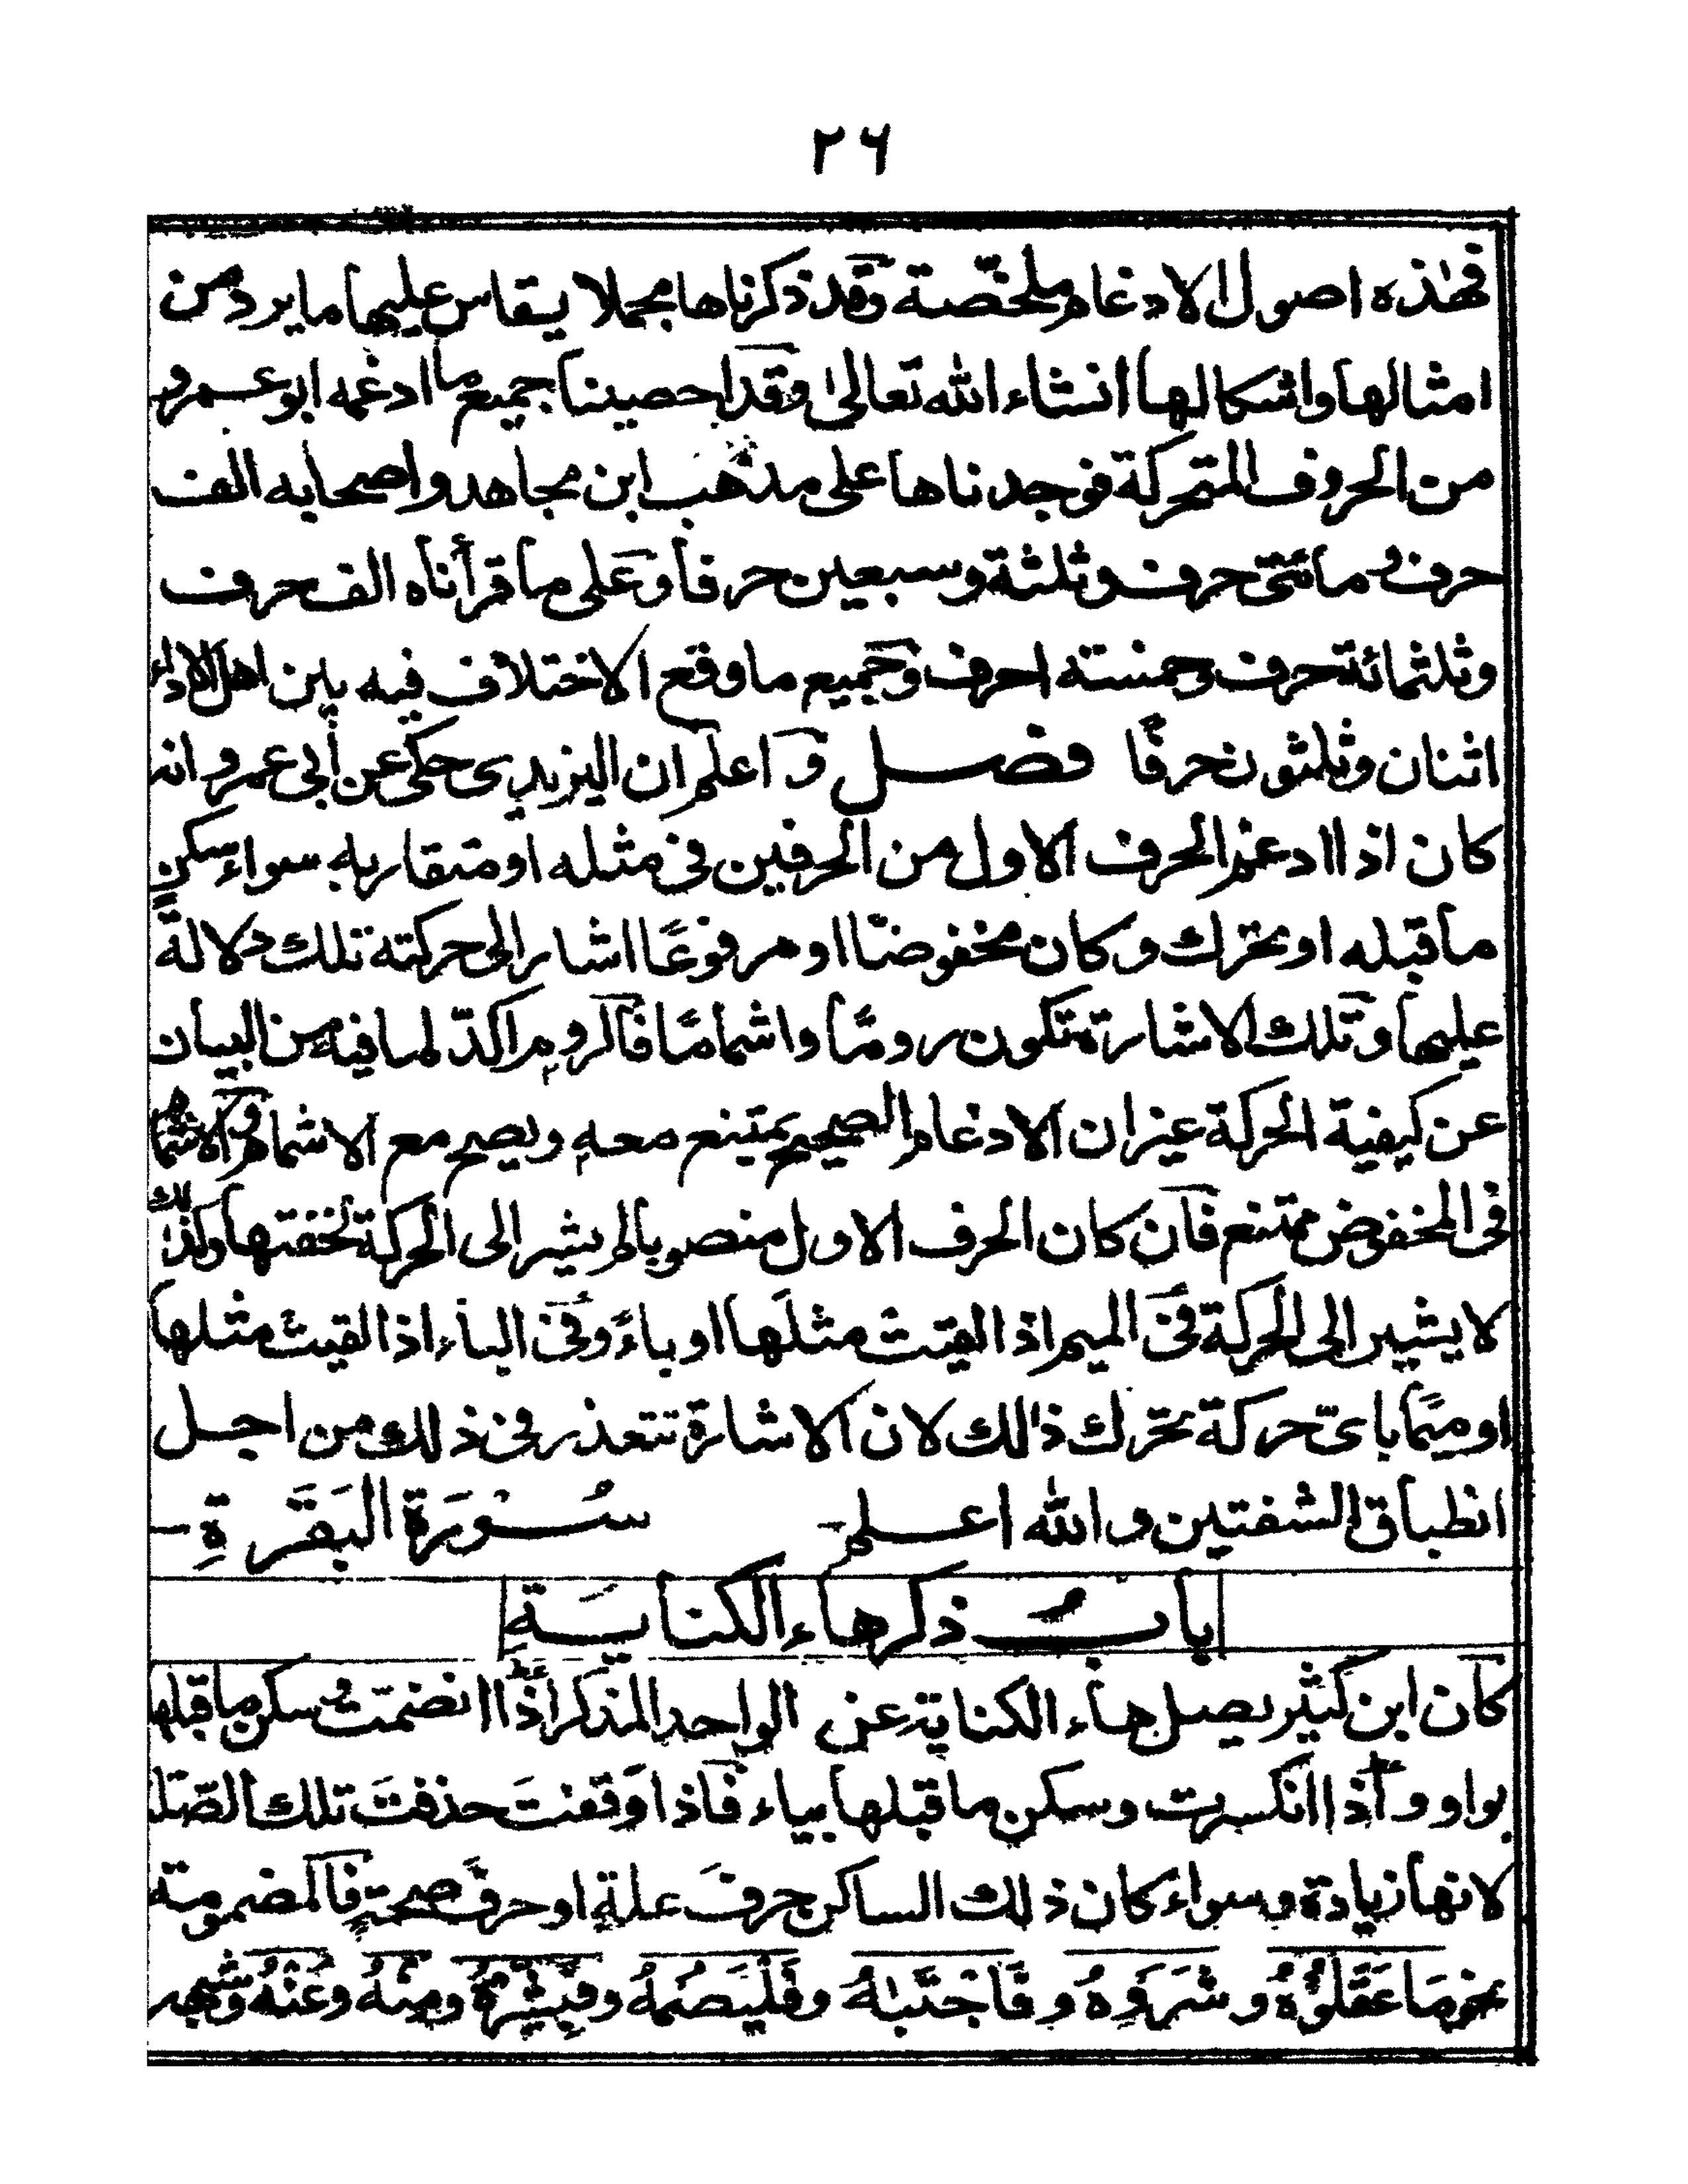 ٢٦
فهٰذه اصول الادغام ملخّصة وقد ذكرناها مجملا يقاس عليها ما يرد من
امثالها واشكالها انشاء الله تعالىٰ وقد احصينا جميع ما ادغمه ابو عمرو
من الحروف المتحركة فوجدناها على مذهب ابن مجاهد واصحابه الف
حرف ومائتى حرف وثلثة وسبعين حرفا وعلى ما قرأناه الف حرف
وثلثمائة حرف وخمسته احرف وجميع ما وقع الاختلاف فيه بين اهل الاداء
اثنان وثلثون حرفًا فصل واعلم ان اليزيدى حكى عن أبى عمرو انه
كان اذا ادغم الحرف الاول من الحرفين فى مثله او متقاربه سواء سكن
ما قبله او تحرك وكان مخفوضًا او مرفوعًا اشار الى حركته تلك دلالةً
عليها وتلك الاشارة تكون رومًا واشمامًا فالروم اكدّ لما فيه من البيان
عن كيفية الحركة غير ان الادغام الصحيح يمتنع معه ويصح مع الاشمام والاشمام
فى المخفوض ممتنع فان كان الحرف الاول منصوبا لم يشر الى الحركة لخفتها وكذلك
لا يشير الى الحركة فى الميم اذا لقيت مثلَها او باءً وفى الباء اذا لقيت مثلها
او ميمًا باىّ حركة تحرك ذٰلك لان الاشارة تتعذر فى ذلك من اجل
انطباق الشفتين والله اعلم- سُورَة البَقَرَةِ-
بابُ ذكر هاء الكنايَةِ
كان ابن كثير يصل هاء الكناية عن الواحد المذكر اذا انضمت وسكن ما قبلها
بواو واذا انكسرت وسكن ما قبلها بياء فاذا وَقفتَ حذفتَ تلك الصّلة
لانها زيادة وسواء كان ذلك الساكن حرفَ علةٍ او حرفَ صحةٍ فالمضمومة
نحو مَا عَقَلُوْهُ و شَرَوْهُ و فَاجْتَبٰهُ و فَلْيَصُمْهُ و فَبَشِّرْهُ و مِنْهُ و عَنْهُ وشبهه